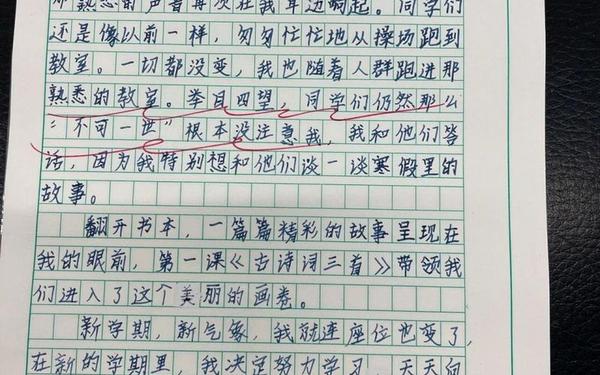 那熟悉的声音再次在我耳边响起。同学们
还是像以前一样，匆匆忙忙地从操场跑到
教室。一切都没变，我也随着人群跑进那
熟悉的教室。举目四望，同学们仍然那么
“不可一世”根本没注意我，我和他们答
话，因为我特别想和他们谈一谈寒假里的
故事。
翻开书本，一篇篇精彩的故事呈现在
我的眼前，第一课《古诗词三首》带领我
们进入了这个美丽的画卷。
新学期，新气象，我就连座位也变了，
在新的学期里，我决定努力学习，天天向